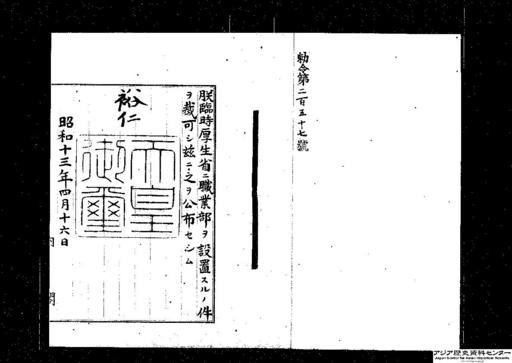 勅令第二百五十七號
朕臨時厚生省ニ職業部ヲ設置スルノ件
ヲ裁可シ茲ニ之ヲ公布セシム
裕仁
天皇
御璽
昭和十三年四月十六日
内閣
アジア歴史資料センター
Japan Center for Asian Historical Records